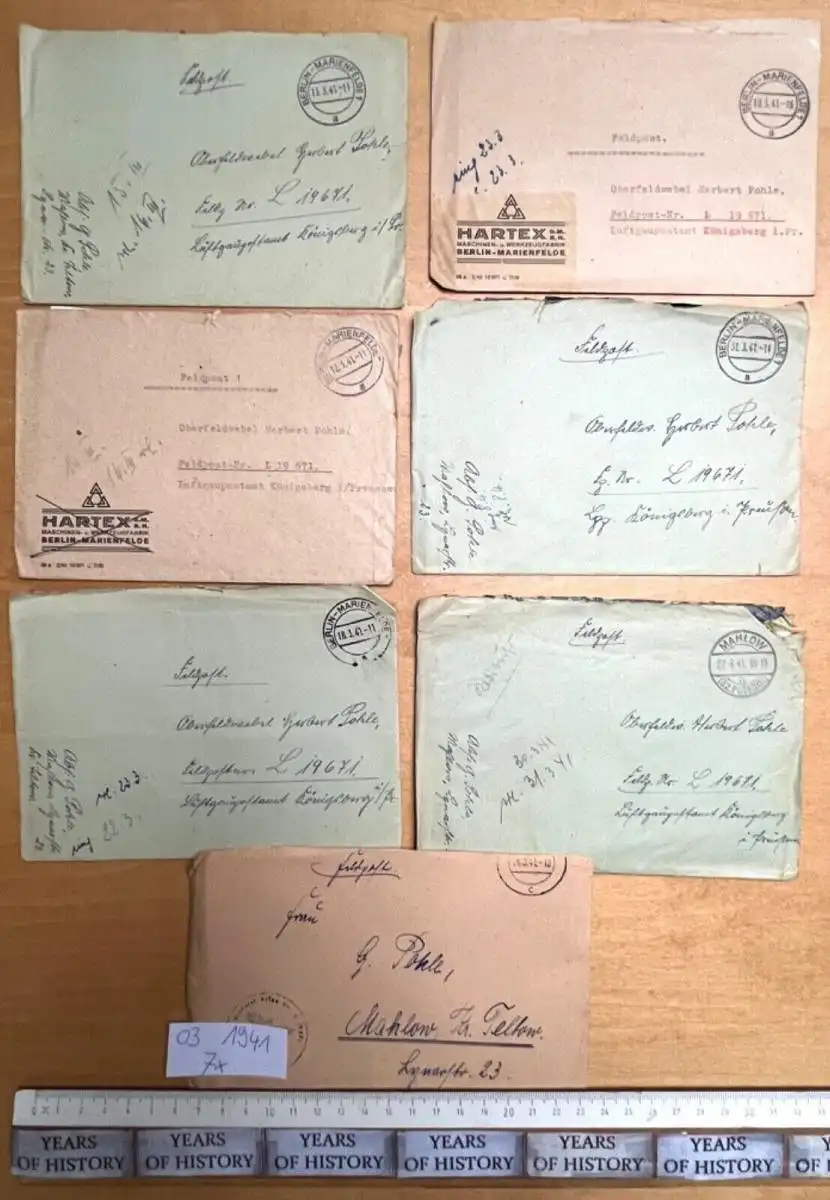 Feldpost.
BERLIN-MARIENFELDE 1
13.3.41.-11
a
Oberfeldwebel Herbert Pohle,
Feldp. Nr. L 19671.
Luftgaupostamt Königsberg i/Pr.
Abs. G. Pohle
Mahlow, Kr. Teltow
Lynarstr. 23.
BERLIN-MARIENFELDE 1
a
Feldpost.
Oberfeldwebel Herbert Pohle.
Feldpost-Nr. L 19 671.
Luftgaupostamt Königsberg i.Pr.
23.3.
23.3.
HARTEX G.M.B.H.
MASCHINEN- u. WERKZEUGFABRIK
BERLIN-MARIENFELDE
BERLIN-MARIENFELDE
12.3.41.-11
a
Feldpost !
Oberfeldwebel Herbert Pohle.
Feldpost-Nr. L 19 671.
Luftgaupostamt Königsberg i/Preussen
HARTEX G.M.B.H.
MASCHINEN- u. WERKZEUGFABRIK
BERLIN-MARIENFELDE
Feldpost.
BERLIN-MARIENFELDE 1
31.3.41.-11
a
Oberfeldw. Herbert Pohle,
Fp. Nr. L 19671.
Lgp. Königsberg i. Preußen
Abs. G. Pohle
Mahlow, Lynarstr.
23.
BERLIN-MARIENFELDE
18.3.41.-11
Feldpost.
Oberfeldwebel Herbert Pohle,
Feldpostnr. L 19671.
Luftgaupostamt Königsberg i/Pr.
Abs. G. Pohle,
Mahlow, Lynarstr.
23
23.3.
22.3.
Feldpost
MAHLOW
Oberfeldw. Herbert Pohle
Feldp. Nr. L 19671.
Luftgaupostamt Königsberg
i. Preußen
Abs. G. Pohle,
Mahlow, Lynarstr.
30.3.41
31.3.41
Feldpost.
c
Frau
G. Pohle,
Mahlow, Kr. Teltow.
Lynarstr. 23.
03 1941
7x
YEARS OF HISTORY
YEARS OF HISTORY
YEARS OF HISTORY
YEARS OF HISTORY
YEARS OF HISTORY
YEARS OF HISTORY